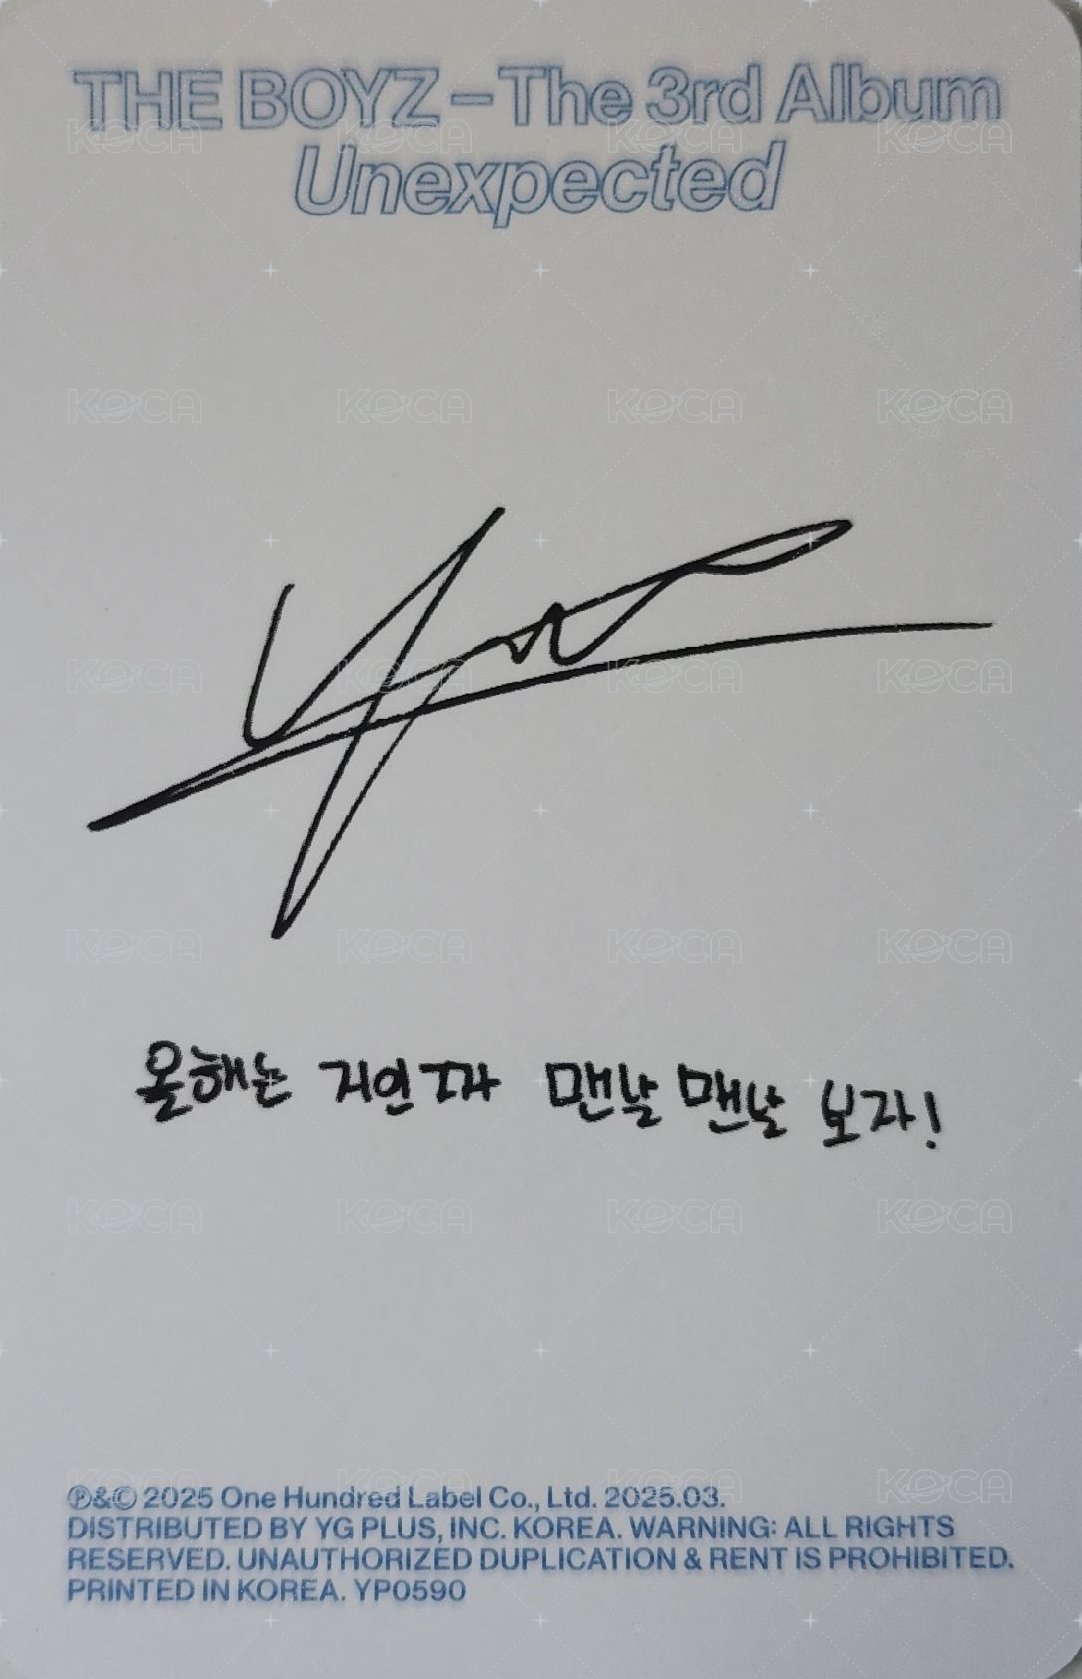 THE BOYZ – The 3rd Album
Unexpected
올해는 지연따 맨날 맨날 보자!
Ⓟ&© 2025 One Hundred Label Co., Ltd. 2025.03.
DISTRIBUTED BY YG PLUS, INC. KOREA. WARNING: ALL RIGHTS
RESERVED. UNAUTHORIZED DUPLICATION & RENT IS PROHIBITED.
PRINTED IN KOREA. YP0590
KOCA